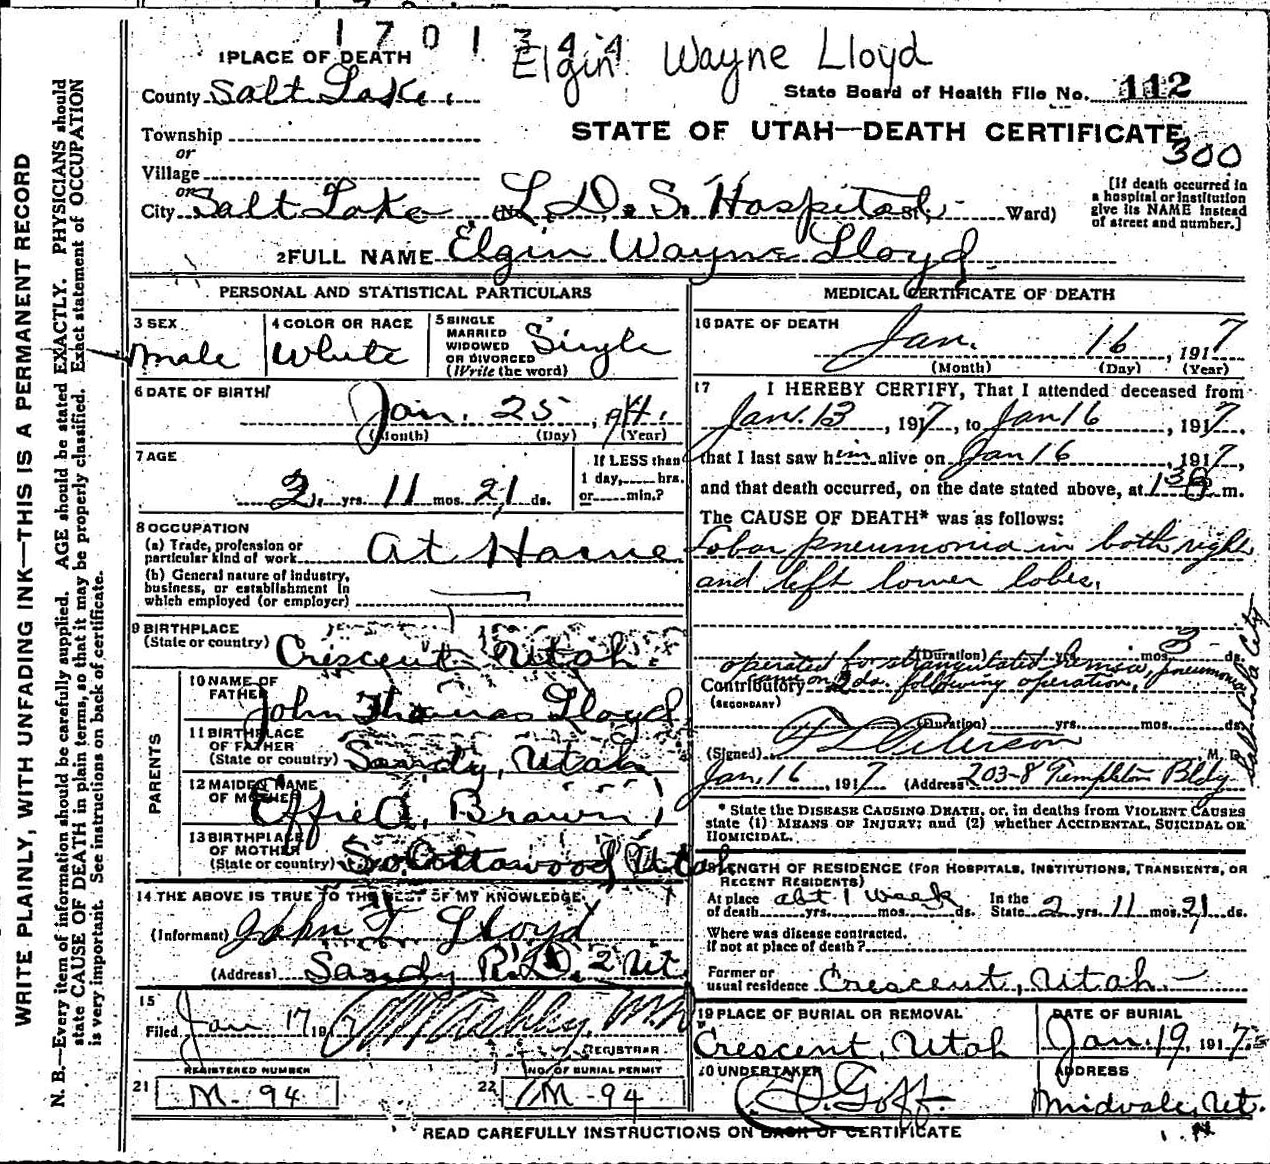 1701344
Elgin Wayne Lloyd
1 PLACE OF DEATH
County Salt Lake.
State Board of Health File No. 112
STATE OF UTAH—DEATH CERTIFICATE
300
Township
or
Village
or
City Salt Lake, (No. L.D.S. Hospital St; Ward)
[If death occurred in a hospital or institution give its NAME instead of street and number.]
2 FULL NAME Elgin Wayne Lloyd.
PERSONAL AND STATISTICAL PARTICULARS
3 SEX Male
4 COLOR OR RACE White
5 SINGLE MARRIED WIDOWED OR DIVORCED (Write the word) Single
6 DATE OF BIRTH Jan. 25, 1914.
(Month) (Day) (Year)
7 AGE
2 yrs. 11 mos. 21 ds.
If LESS than 1 day, hrs. or min.?
8 OCCUPATION
(a) Trade, profession or particular kind of work At Home
(b) General nature of industry, business, or establishment in which employed (or employer)
9 BIRTHPLACE
(State or country) Crescent Utah.
PARENTS
10 NAME OF FATHER John Thomas Lloyd
11 BIRTHPLACE OF FATHER (State or country) Sandy, Utah
12 MAIDEN NAME OF MOTHER Effie A. Brown
13 BIRTHPLACE OF MOTHER (State or country) So. Cottowood Utah
14 THE ABOVE IS TRUE TO THE BEST OF MY KNOWLEDGE
(Informant) John T. Lloyd
(Address) Sandy R.D. 2 Ut.
15
Filed Jan 17 1917
REGISTRAR
REGISTERED NUMBER
21 M-94
NO. OF BURIAL PERMIT
22 M-94
MEDICAL CERTIFICATE OF DEATH
16 DATE OF DEATH
Jan. 16, 1917
(Month) (Day) (Year)
17 I HEREBY CERTIFY, That I attended deceased from
Jan. 13, 1917, to Jan 16, 1917,
that I last saw him alive on Jan 16, 1917,
and that death occurred, on the date stated above, at 130 m.
The CAUSE OF DEATH* was as follows:
Lobar pneumonia in both right
and left lower lobes.
(Duration) yrs. mos. 3 ds.
operated for strangulated hernia, pneumonia
Contributory came on 2 da. following operation.
(SECONDARY)
(Duration) yrs. mos. ds.
(Signed) Peterson M. D.
Jan. 16, 1917 (Address) 203-8 Templeton Bldg
Salt Lake City
* State the DISEASE CAUSING DEATH, or, in deaths from VIOLENT CAUSES
state (1) MEANS OF INJURY; and (2) whether ACCIDENTAL, SUICIDAL OR
HOMICIDAL.
18 LENGTH OF RESIDENCE (FOR HOSPITALS, INSTITUTIONS, TRANSIENTS, OR RECENT RESIDENTS)
At place of death abt 1 week yrs. mos. ds. In the State 2 yrs. 11 mos. 21 ds.
Where was disease contracted.
if not at place of death?
Former or usual residence Crescent, Utah.
19 PLACE OF BURIAL OR REMOVAL
Crescent, Utah
DATE OF BURIAL
Jan. 19, 1917
20 UNDERTAKER
Goff.
ADDRESS
Midvale, Ut.
READ CAREFULLY INSTRUCTIONS ON BACK OF CERTIFICATE
WRITE PLAINLY, WITH UNFADING INK—THIS IS A PERMANENT RECORD
N. B.—Every item of information should be carefully supplied. AGE should be stated EXACTLY. PHYSICIANS should
state CAUSE OF DEATH in plain terms, so that it may be properly classified. Exact statement of OCCUPATION
is very important. See instructions on back of certificate.